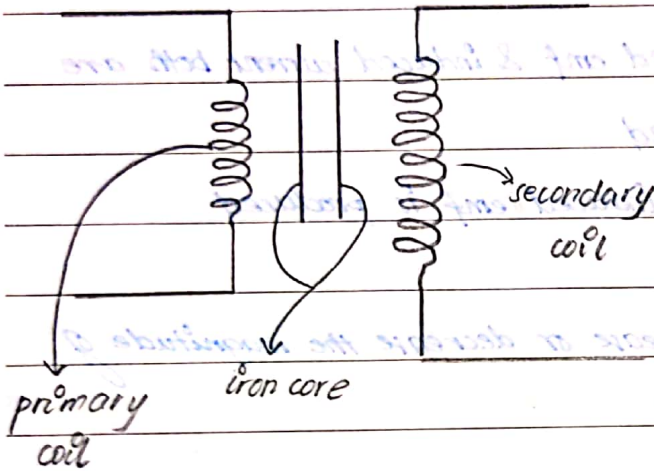 secondary
coil
iron core
primary
coil